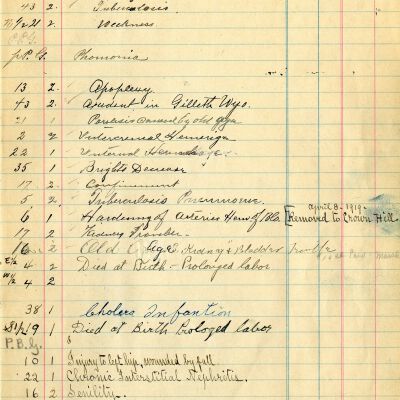 43 2. Tuberculosis
21 2. Weekness
P. G. Phomonia
13 2. Apoplexy
43 2. Accident in Gillett Wyo.
21 1 Paralasis caused by old age
2 2 Intercranial Hemeriga
22 1 Internal
35 1 Brights Decease
17 2. Confinement
5 2. Tuberculosis Pneumonia.
April 8. 1919.
6 1 Hardening of Arteries Hem of [Removed to Crown Hill.
17 2. Kidney Trouble.
16 2 Old Age & Kidney & Bladder Trouble
E½ 4 2 Died at Birth - Prolonged labor
W½ 4 2
38 1 Cholera Infantion
S½ 19 1 Died at Birth Prologed labor
P. B. G.
10 1 Injury to left hip, wounded by fall
22 1 Chronic Interstitial Nephritis.
16 2 Senility.